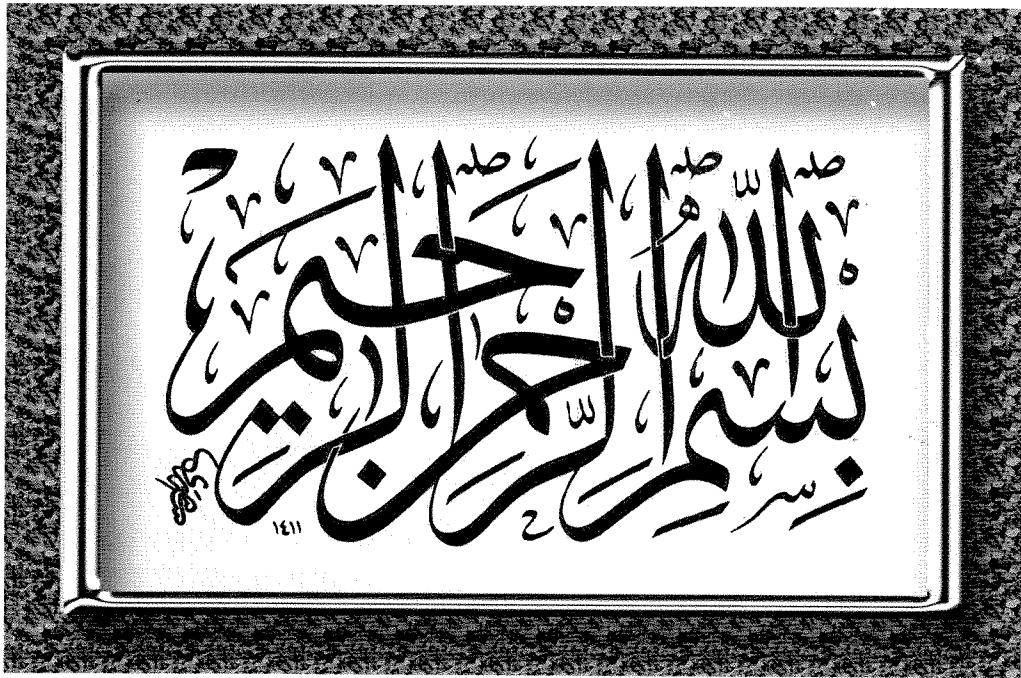 بِسْمِ اللَّهِ الرَّحْمَٰنِ الرَّحِيمِ
١٤١١